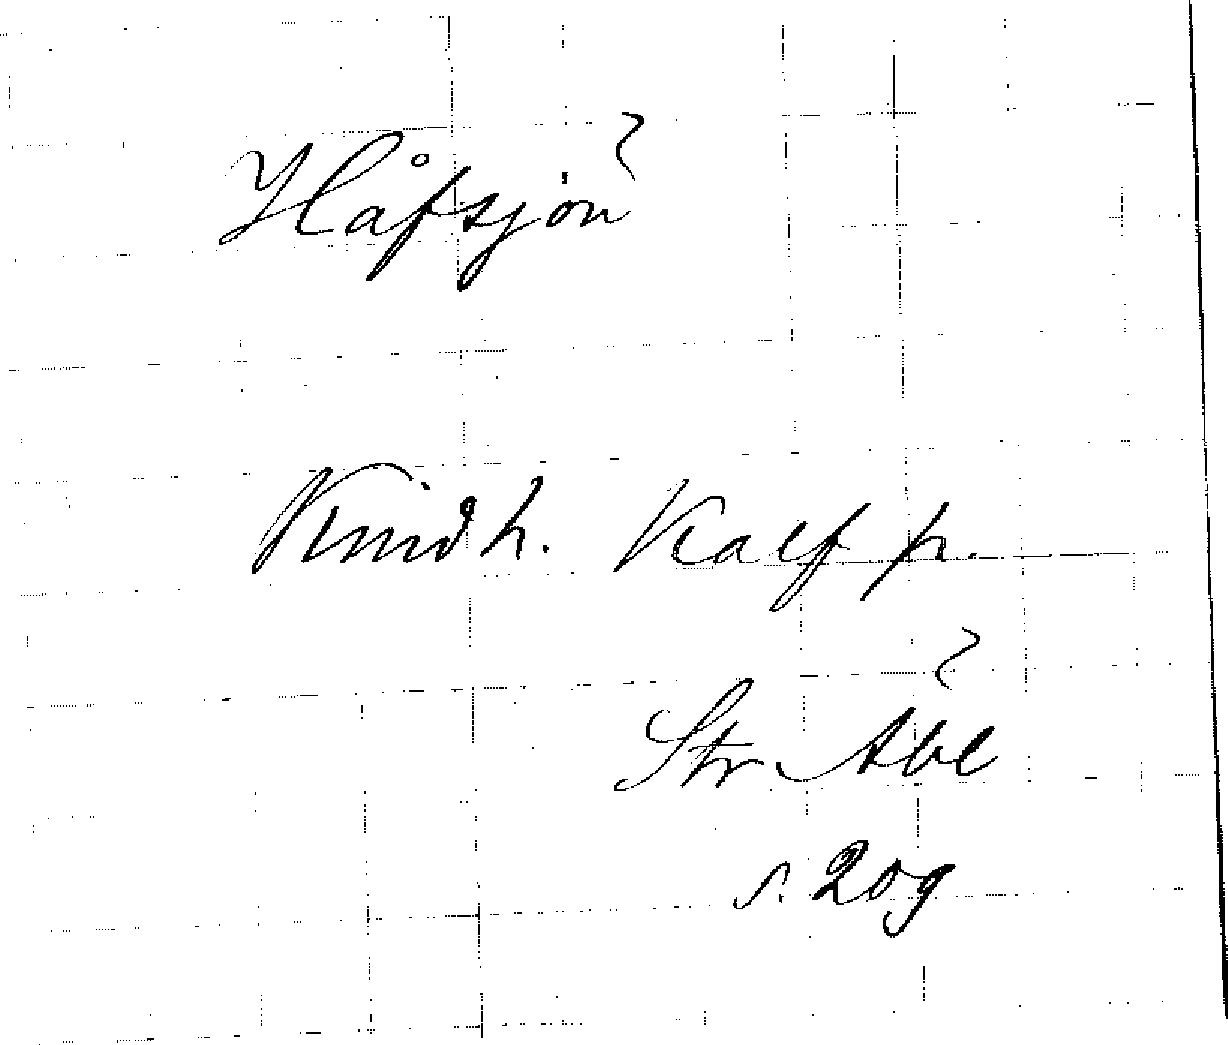 Håfsjön
Kinds h. Kalf p.
Str. Abl
s. 209